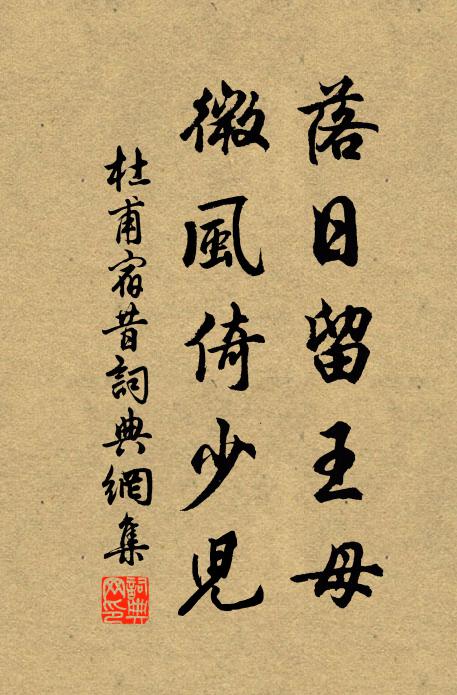 落日留王母
微風倚少兒
杜甫宿昔詞典網集
詞典網印